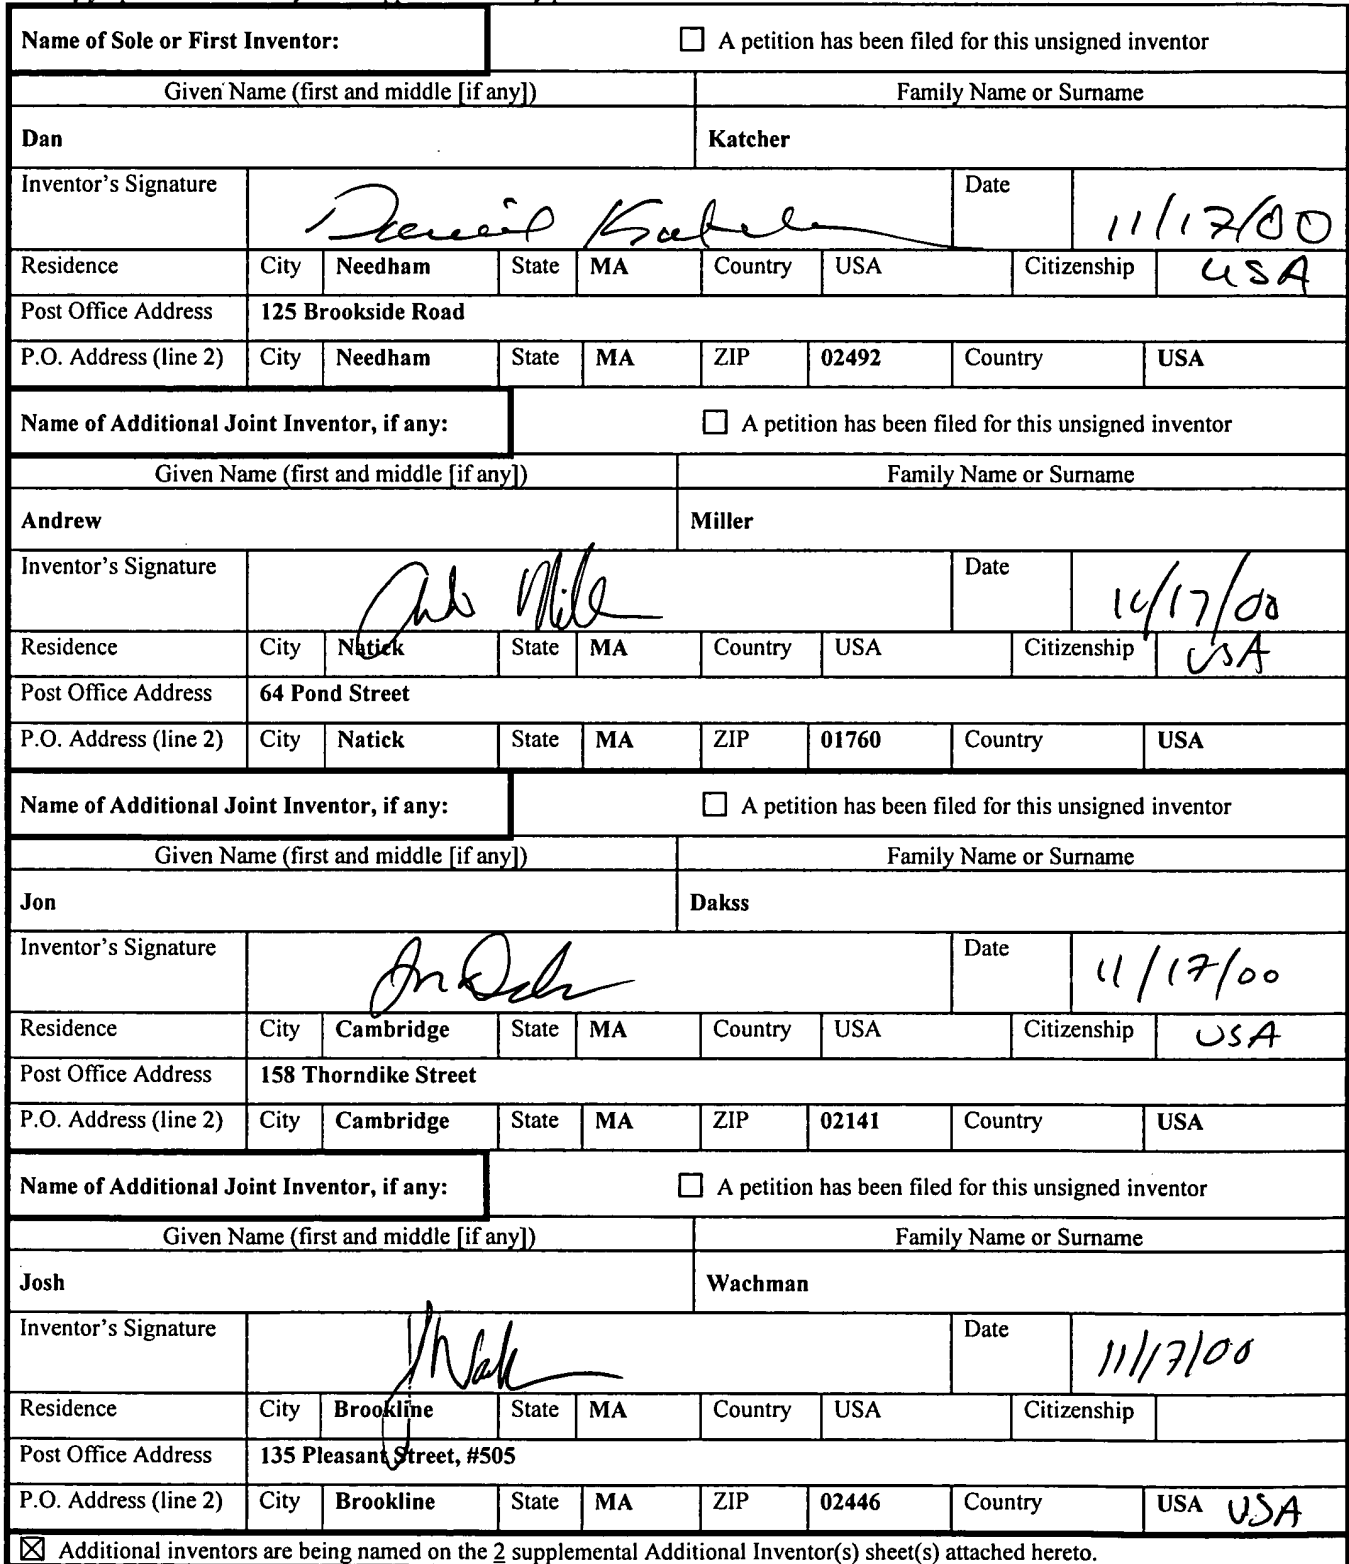 Name of Sole or First Inventor: ☐ A petition has been filed for this unsigned inventor
Given Name (first and middle [if any]) Family Name or Surname
Dan Katcher
Inventor's Signature Daniel Katcher Date 11/17/00
Residence City Needham State MA Country USA Citizenship USA
Post Office Address 125 Brookside Road
P.O. Address (line 2) City Needham State MA ZIP 02492 Country USA
Name of Additional Joint Inventor, if any: ☐ A petition has been filed for this unsigned inventor
Given Name (first and middle [if any]) Family Name or Surname
Andrew Miller
Inventor's Signature Date 11/17/00
Residence City Natick State MA Country USA Citizenship USA
Post Office Address 64 Pond Street
P.O. Address (line 2) City Natick State MA ZIP 01760 Country USA
Name of Additional Joint Inventor, if any: ☐ A petition has been filed for this unsigned inventor
Given Name (first and middle [if any]) Family Name or Surname
Jon Dakss
Inventor's Signature Date 11/17/00
Residence City Cambridge State MA Country USA Citizenship USA
Post Office Address 158 Thorndike Street
P.O. Address (line 2) City Cambridge State MA ZIP 02141 Country USA
Name of Additional Joint Inventor, if any: ☐ A petition has been filed for this unsigned inventor
Given Name (first and middle [if any]) Family Name or Surname
Josh Wachman
Inventor's Signature Date 11/17/00
Residence City Brookline State MA Country USA Citizenship
Post Office Address 135 Pleasant Street, #505
P.O. Address (line 2) City Brookline State MA ZIP 02446 Country USA USA
☒ Additional inventors are being named on the 2 supplemental Additional Inventor(s) sheet(s) attached hereto.